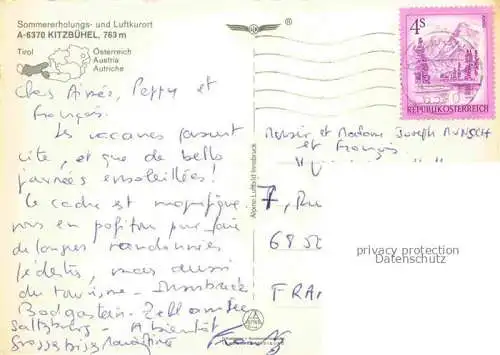 Sommererholungs- und Luftkurort
A-6370 KITZBÜHEL, 763 m
Tirol
Österreich
Austria
Autriche
®
4S
REPUBLIK ÖSTERREICH
Alpine Luftbild Innsbruck
Chers Aimée, Peppy et
François.
Les vacances passent
vite, et que de belles
journées ensoleillées!
Le cadre est magnifique
nous en profitons pour faire
de longues randonnées
pédestres, mais aussi
du tourisme - Innsbruck
Badgastein - Zell am See
Saltzburg - A bientôt
Grosses bises
Monsieur et Madame Joseph
et François
7, Ru
68
FRAN
privacy protection
Datenschutz